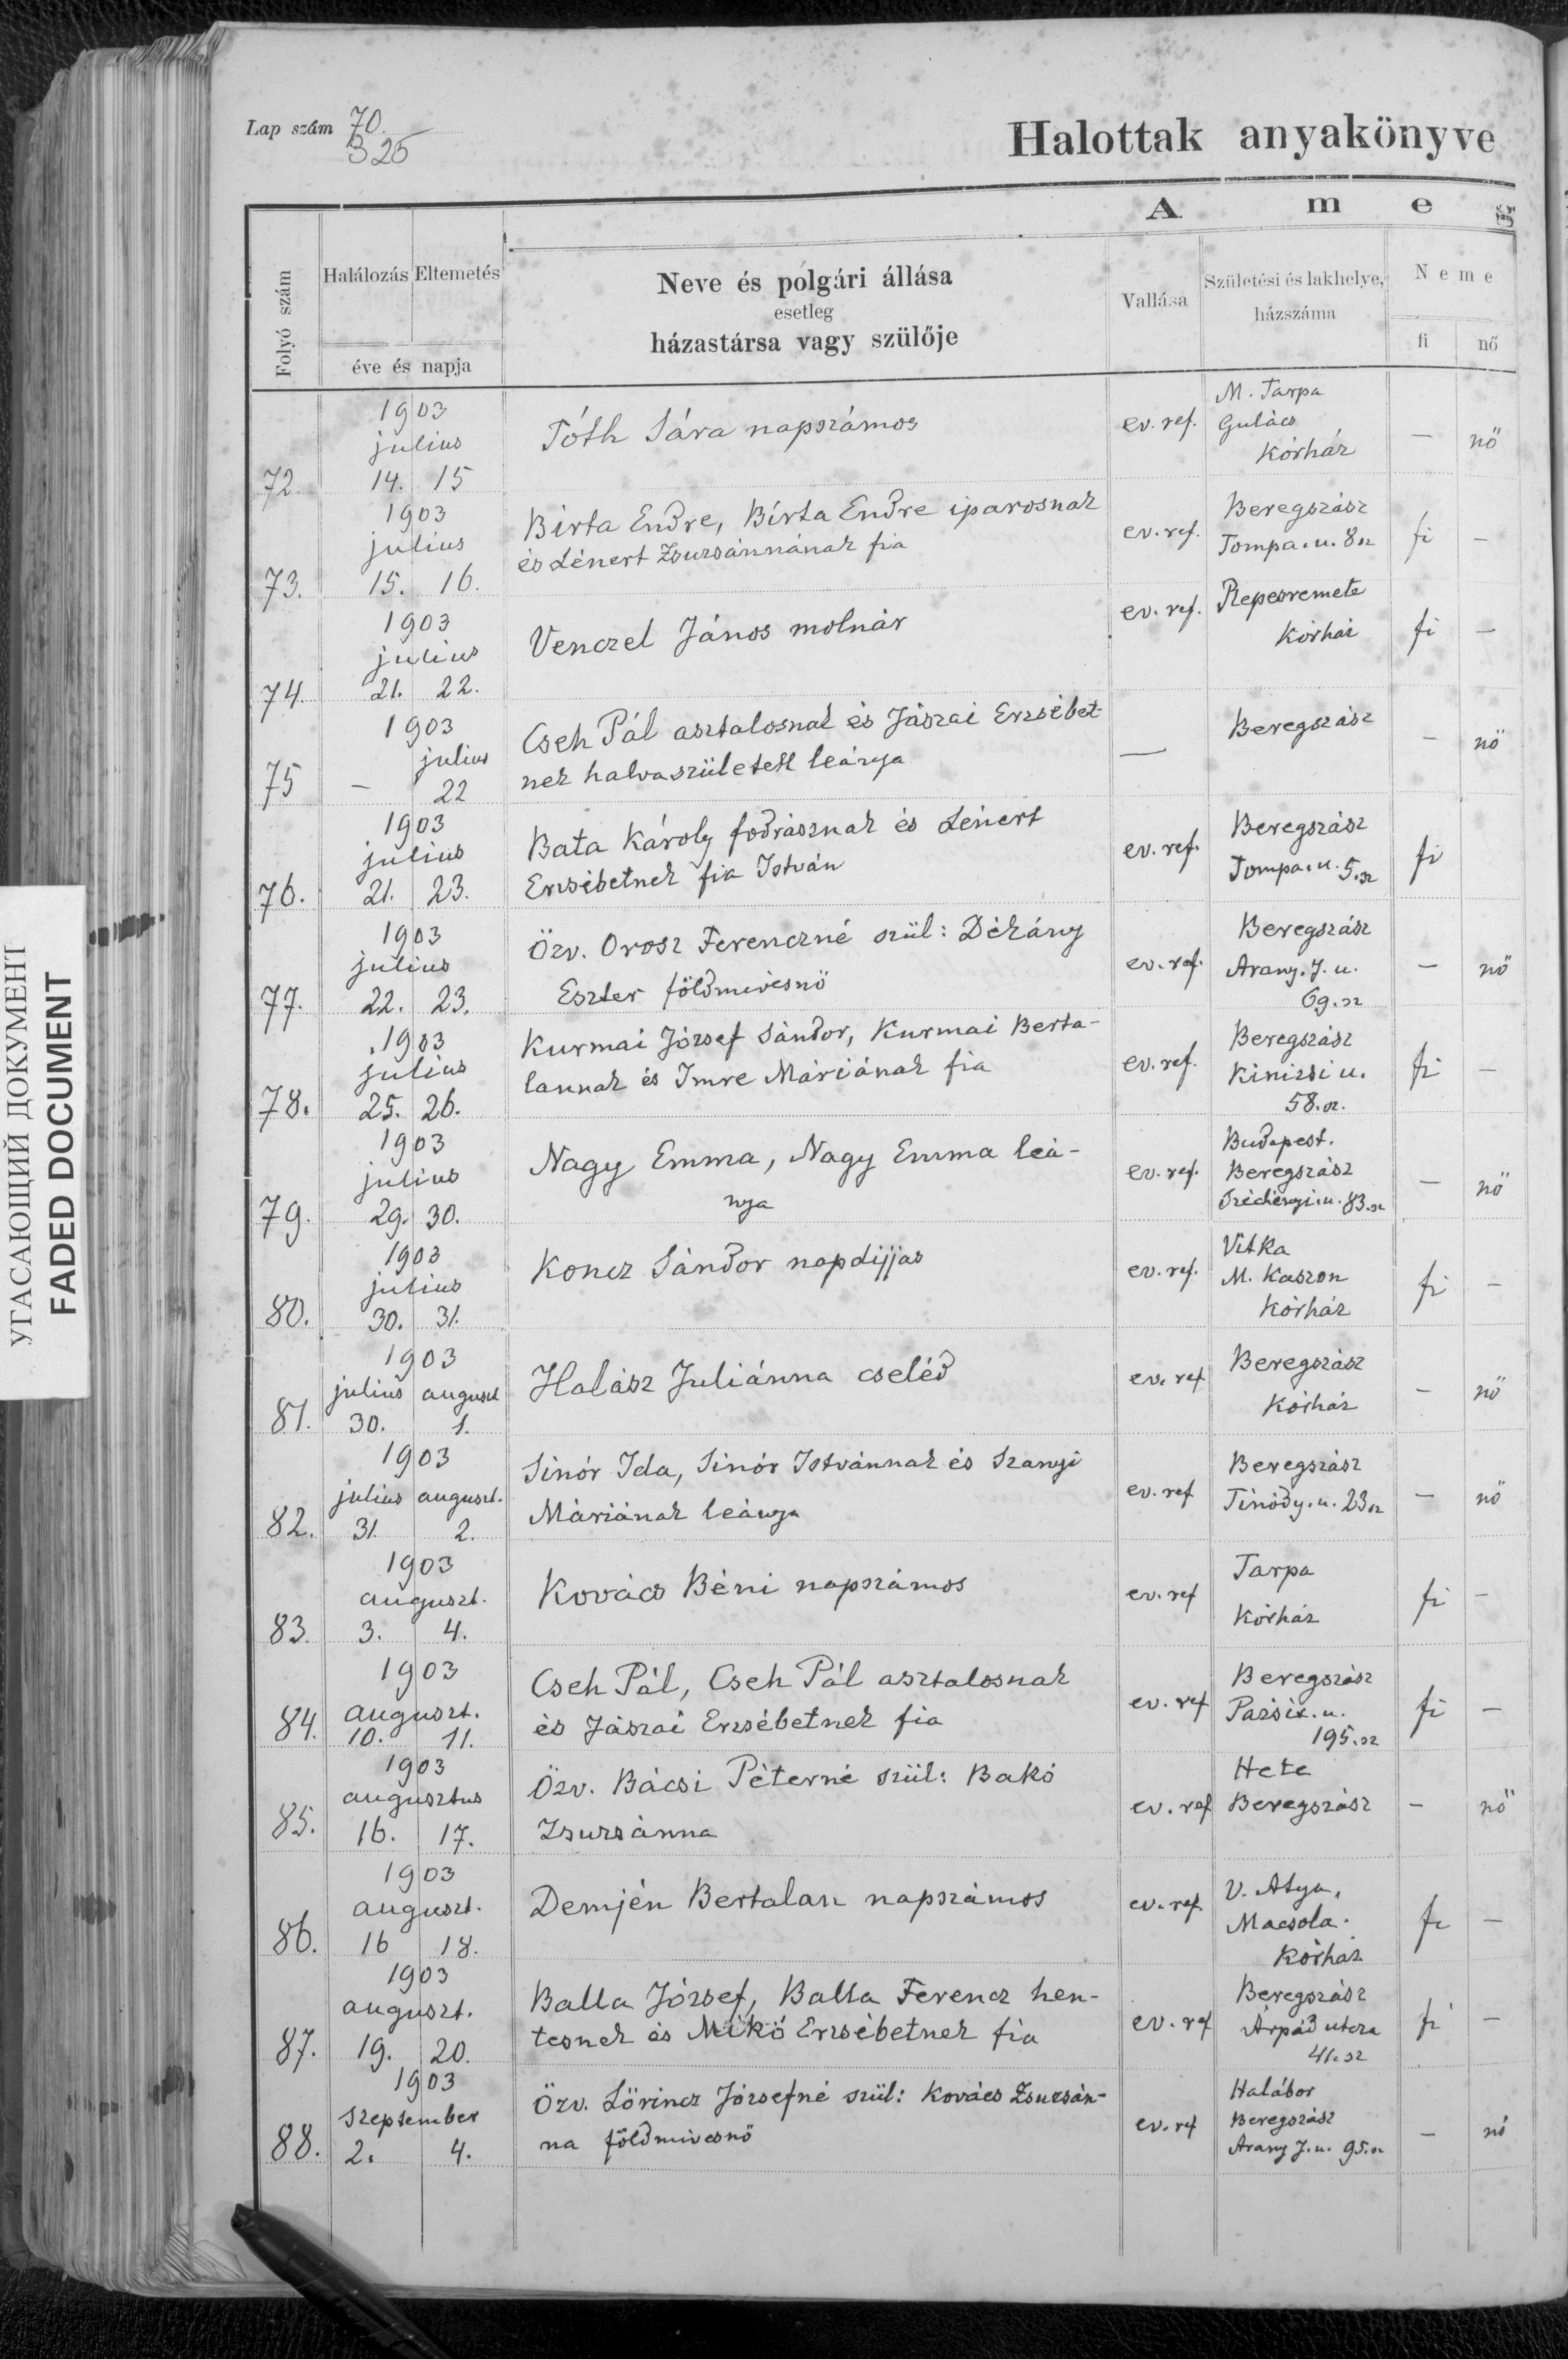 Lap szám 70.
325
Halottak anyakönyve
A m e g
Folyó szám
Halálozás Eltemetés
éve és napja
Neve és polgári állása
esetleg
házastársa vagy szülője
Vallása
Születési és lakhelye,
házszáma
Neme
fi nő
1903
julius
72. 14. 15
Tóth Sára napszámos
ev. ref.
M. Tarpa
Gulács
Kórház
— nő
1903
julius
73. 15. 16.
Birta Endre, Birta Endre iparosnak
és Lénert Zsuzsánnának fia
ev. ref.
Beregszász
Tompa. u. 8 sz
fi —
1903
julius
74. 21. 22.
Venczel János molnár
ev. ref.
Repesremete
Kórház
fi —
1903
julius
75 — 22
Cseh Pál asztalosnak és Jászai Erzsébet-
nek halvaszületett leánya
—
Beregszász
— nő
1903
julius
76. 21. 23.
Bata Károly fodrásznak és Lénert
Erzsébetnek fia István
ev. ref.
Beregszász
Tompa. u. 5. sz
fi
1903
julius
77. 22. 23.
Özv. Orosz Ferenczné szül: Dékány
Eszter földmivesnő
ev. ref.
Beregszász
Arany. J. u.
69. sz
— nő
1903
julius
78. 25. 26.
Kurmai József Sándor, Kurmai Berta-
lannak és Imre Máriának fia
ev. ref.
Beregszász
Kinizsi u.
58. sz.
fi —
1903
julius
79. 29. 30.
Nagy Emma, Nagy Emma leá-
nya
ev. ref.
Budapest.
Beregszász
Széchényi. u. 83. sz
— nő
1903
julius
80. 30. 31.
Koncz Sándor napdijjas
ev. ref.
Vitka
M. Kaszon
Kórház
fi —
1903
julius auguszt
81. 30. 1.
Halász Juliánna cseléd
ev. ref
Beregszász
Kórház
— nő
1903
julius auguszt.
82. 31. 2.
Sinór Ida, Sinór Istvánnak és Szanyi
Máriának leánya
ev. ref
Beregszász
Tinódy. u. 23 sz
— nő
1903
auguszt.
83. 3. 4.
Kovács Béni napszámos
ev. ref
Tarpa
Kórház
fi —
1903
auguszt.
84. 10. 11.
Cseh Pál, Cseh Pál asztalosnak
és Jászai Erzsébetnek fia
ev. ref
Beregszász
Pázsit. u.
195. sz
fi —
1903
augusztus
85. 16. 17.
Özv. Bácsi Péterné szül: Bakó
Zsuzsánna
ev. ref
Hete
Beregszász
— nő
1903
auguszt.
86. 16 18.
Demjén Bertalan napszámos
ev. ref.
V. Atya,
Macsola.
Kórház
fi —
1903
auguszt.
87. 19. 20.
Balla József, Balla Ferencz hen-
tesnek és Mikó Erzsébetnek fia
ev. ref
Beregszász
Árpád utcza
41. sz
fi —
1903
Szeptember
88. 2. 4.
Özv. Lőrincz Józsefné szül: Kovács Zsuzsán-
na földmivesnő
ev. ref
Halábor
Beregszász
Arany J. u. 95. sz
— nő
УГАСАЮЩИЙ ДОКУМЕНТ
FADED DOCUMENT